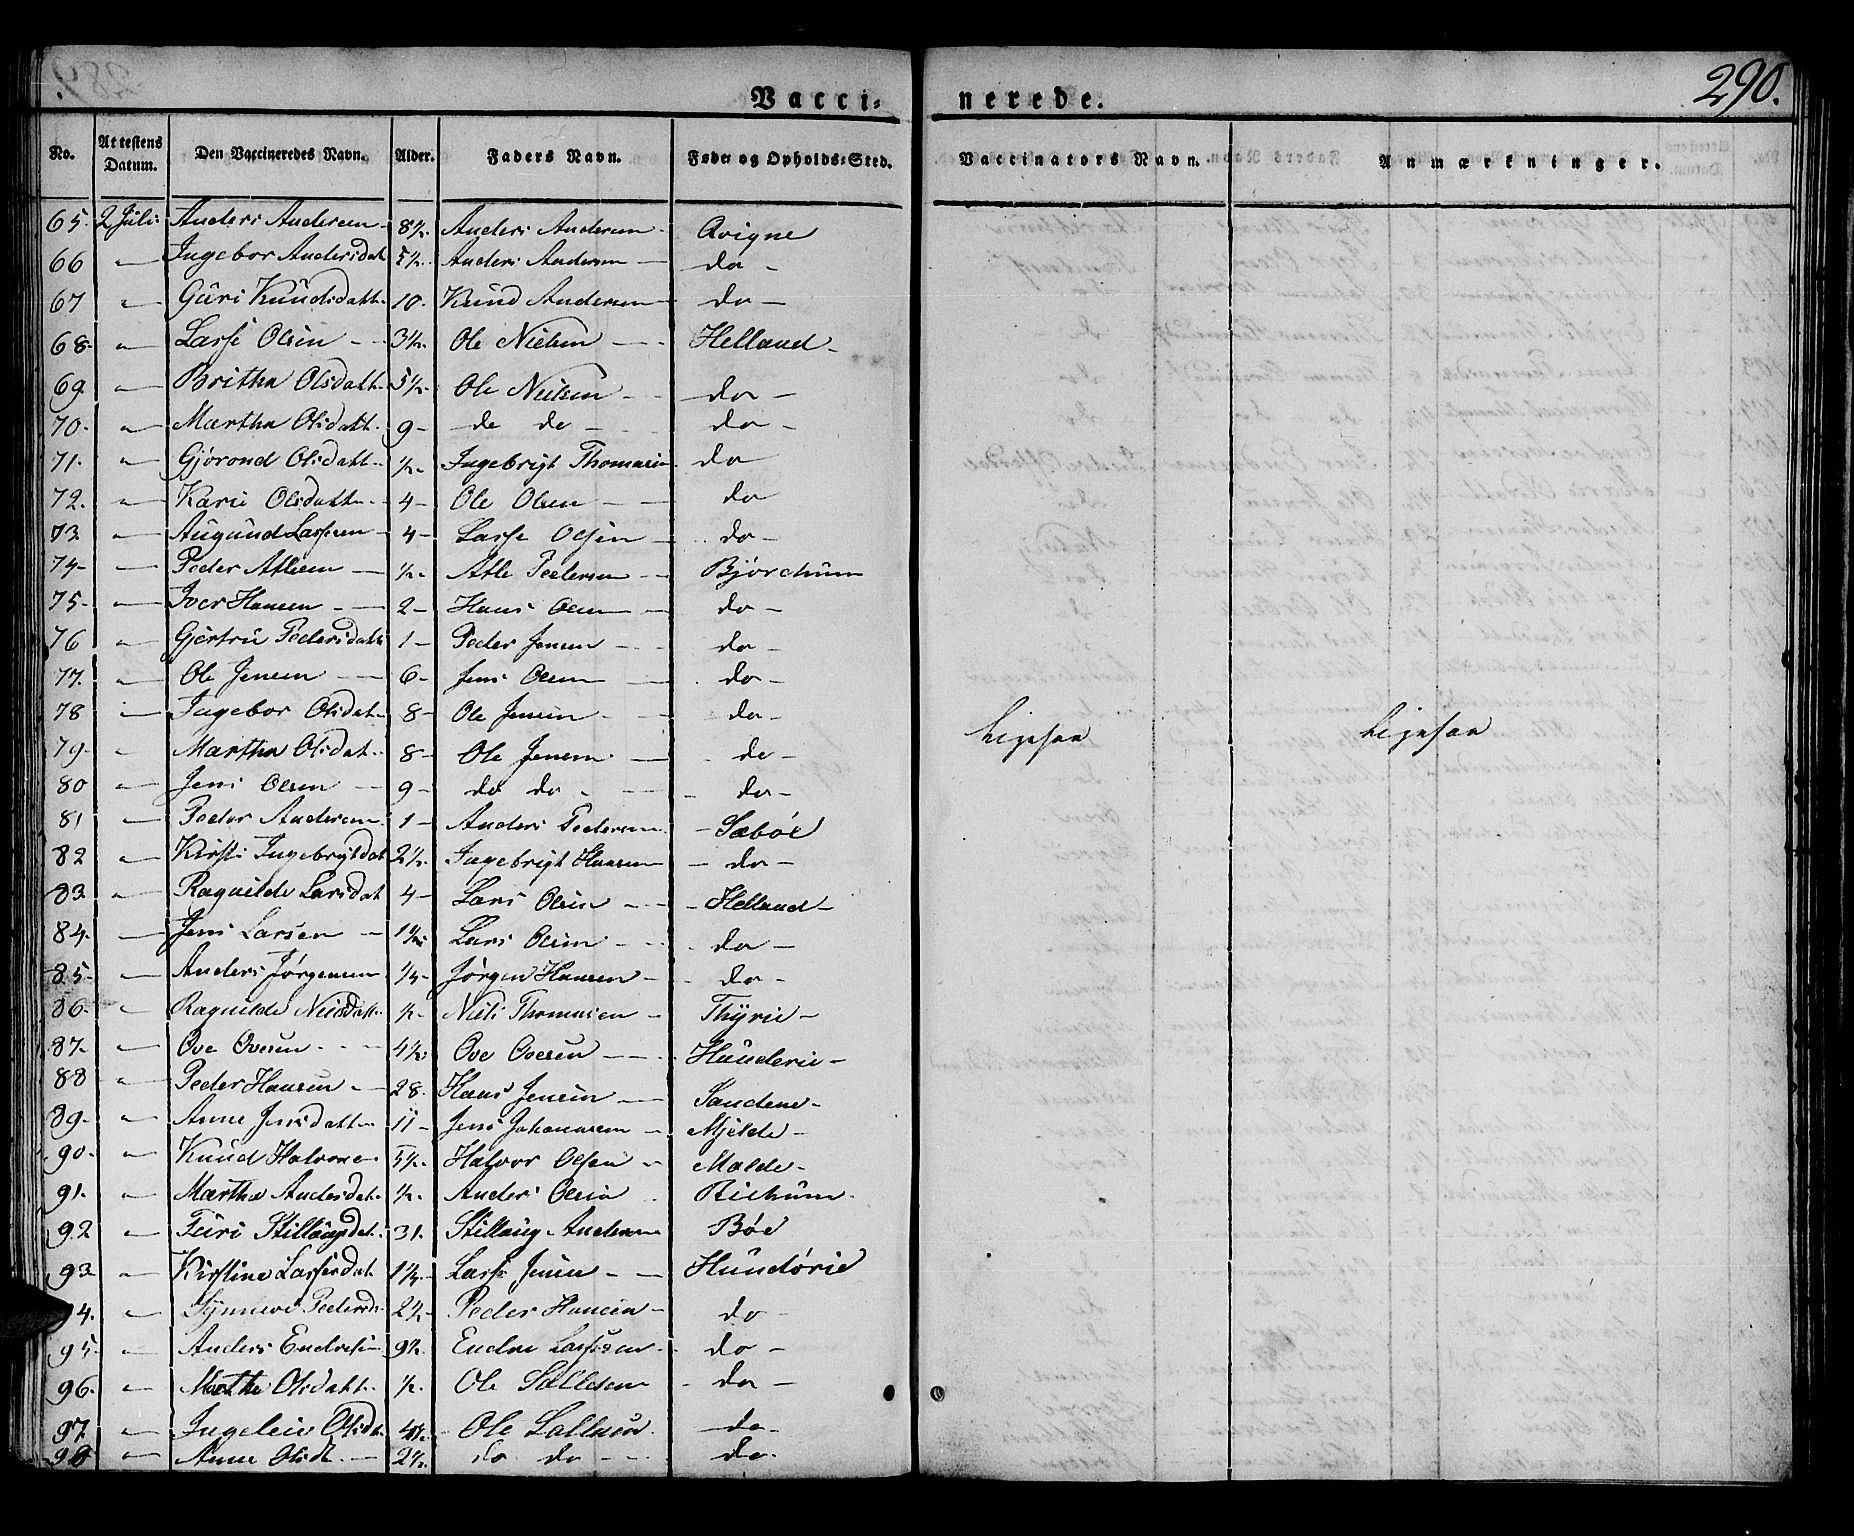 290.
Vacci= nerede.
No. Attestens Datum. Den Vaccineredes Navn. Alder. Faders Navn. Føde= og Opholds=Sted. Vaccinators Navn. Anmærkninger.
65. 2 Juli Anders Andersen 8½. Anders Andersen Qvigne
66 " Ingebor Andersdat 5½. Anders Andersen do
67 " Gùri Knùdsdatt 10. Knùd Andersen do
68. " Lasse Olsen 3½. Ole Nielsen Helland
69. " Britha Olsdatt 5½. Ole Nielsen do
70. " Martha Olsdatt. 9 do do do
71. " Gjørond Olsdatt ½ Ingebrigt Thomasen do
72. " Kari Olsdatt 4 Ole Olsen do
73 " Augùnd Lassesen 4 Lasse Olsen do
74 " Peder Atlesen ½ Atle Pedersen Bjørchum
75. " Iver Hansen 2 Hans Olsen do
76 " Gjertru Pedersdatt 1 Peder Jensen do
77. " Ole Jensen 6 Jens Olsen do
78 " Ingebor Olsdat 8 Ole Jensen do
79 " Martha Olsdat. 8 Ole Jensen do Ligesaa Ligesaa
80 " Jens Olsen 9 do do do
81 " Peder Andersen 1 Anders Pedersen Sæbøe
82 " Kirsti Ingebrigtdat 2½. Ingebrigt Hansen do
83. " Ragnilde Larsdat 4 Lars Olsen Helland
84. " Jens Larsen 1½ Lars Olsen do
85. " Anders Jørgensen ¼ Jørgen Hansen do
86. " Ragnilde Nielsdatt ½. Niels Thomasen Thÿrie
87. " Ove Ovesen 4½ Ove Ovesen Hùnderie
88 " Peder Hansen 28. Hans Jensen Sandene
89. " Anne Jensdatt 11 Jens Johannesen Mjelde
90. " Knùd Halvorse 5½. Halvor Olsen Malde
91. " Martha Andersdat ½. Anders Olsen
92 " Tùri Stillaugsdat. 31. Stillaug Andersen Bøe
93 " Kirstine Lassesdat 1¼. Lasse Jensen Hùndørie
94. " Synneve Pedersd. 2½ Peder Hansen do
95 " Anders Endresen 9½. Endre Lassesen do
96. " Marthe Olsdatt ½. Ole Sallesen do
97. " Ingeleiv Olsdat 4½. Ole Sallesen do
98 " Anne Olsdt. 2½ do do do.